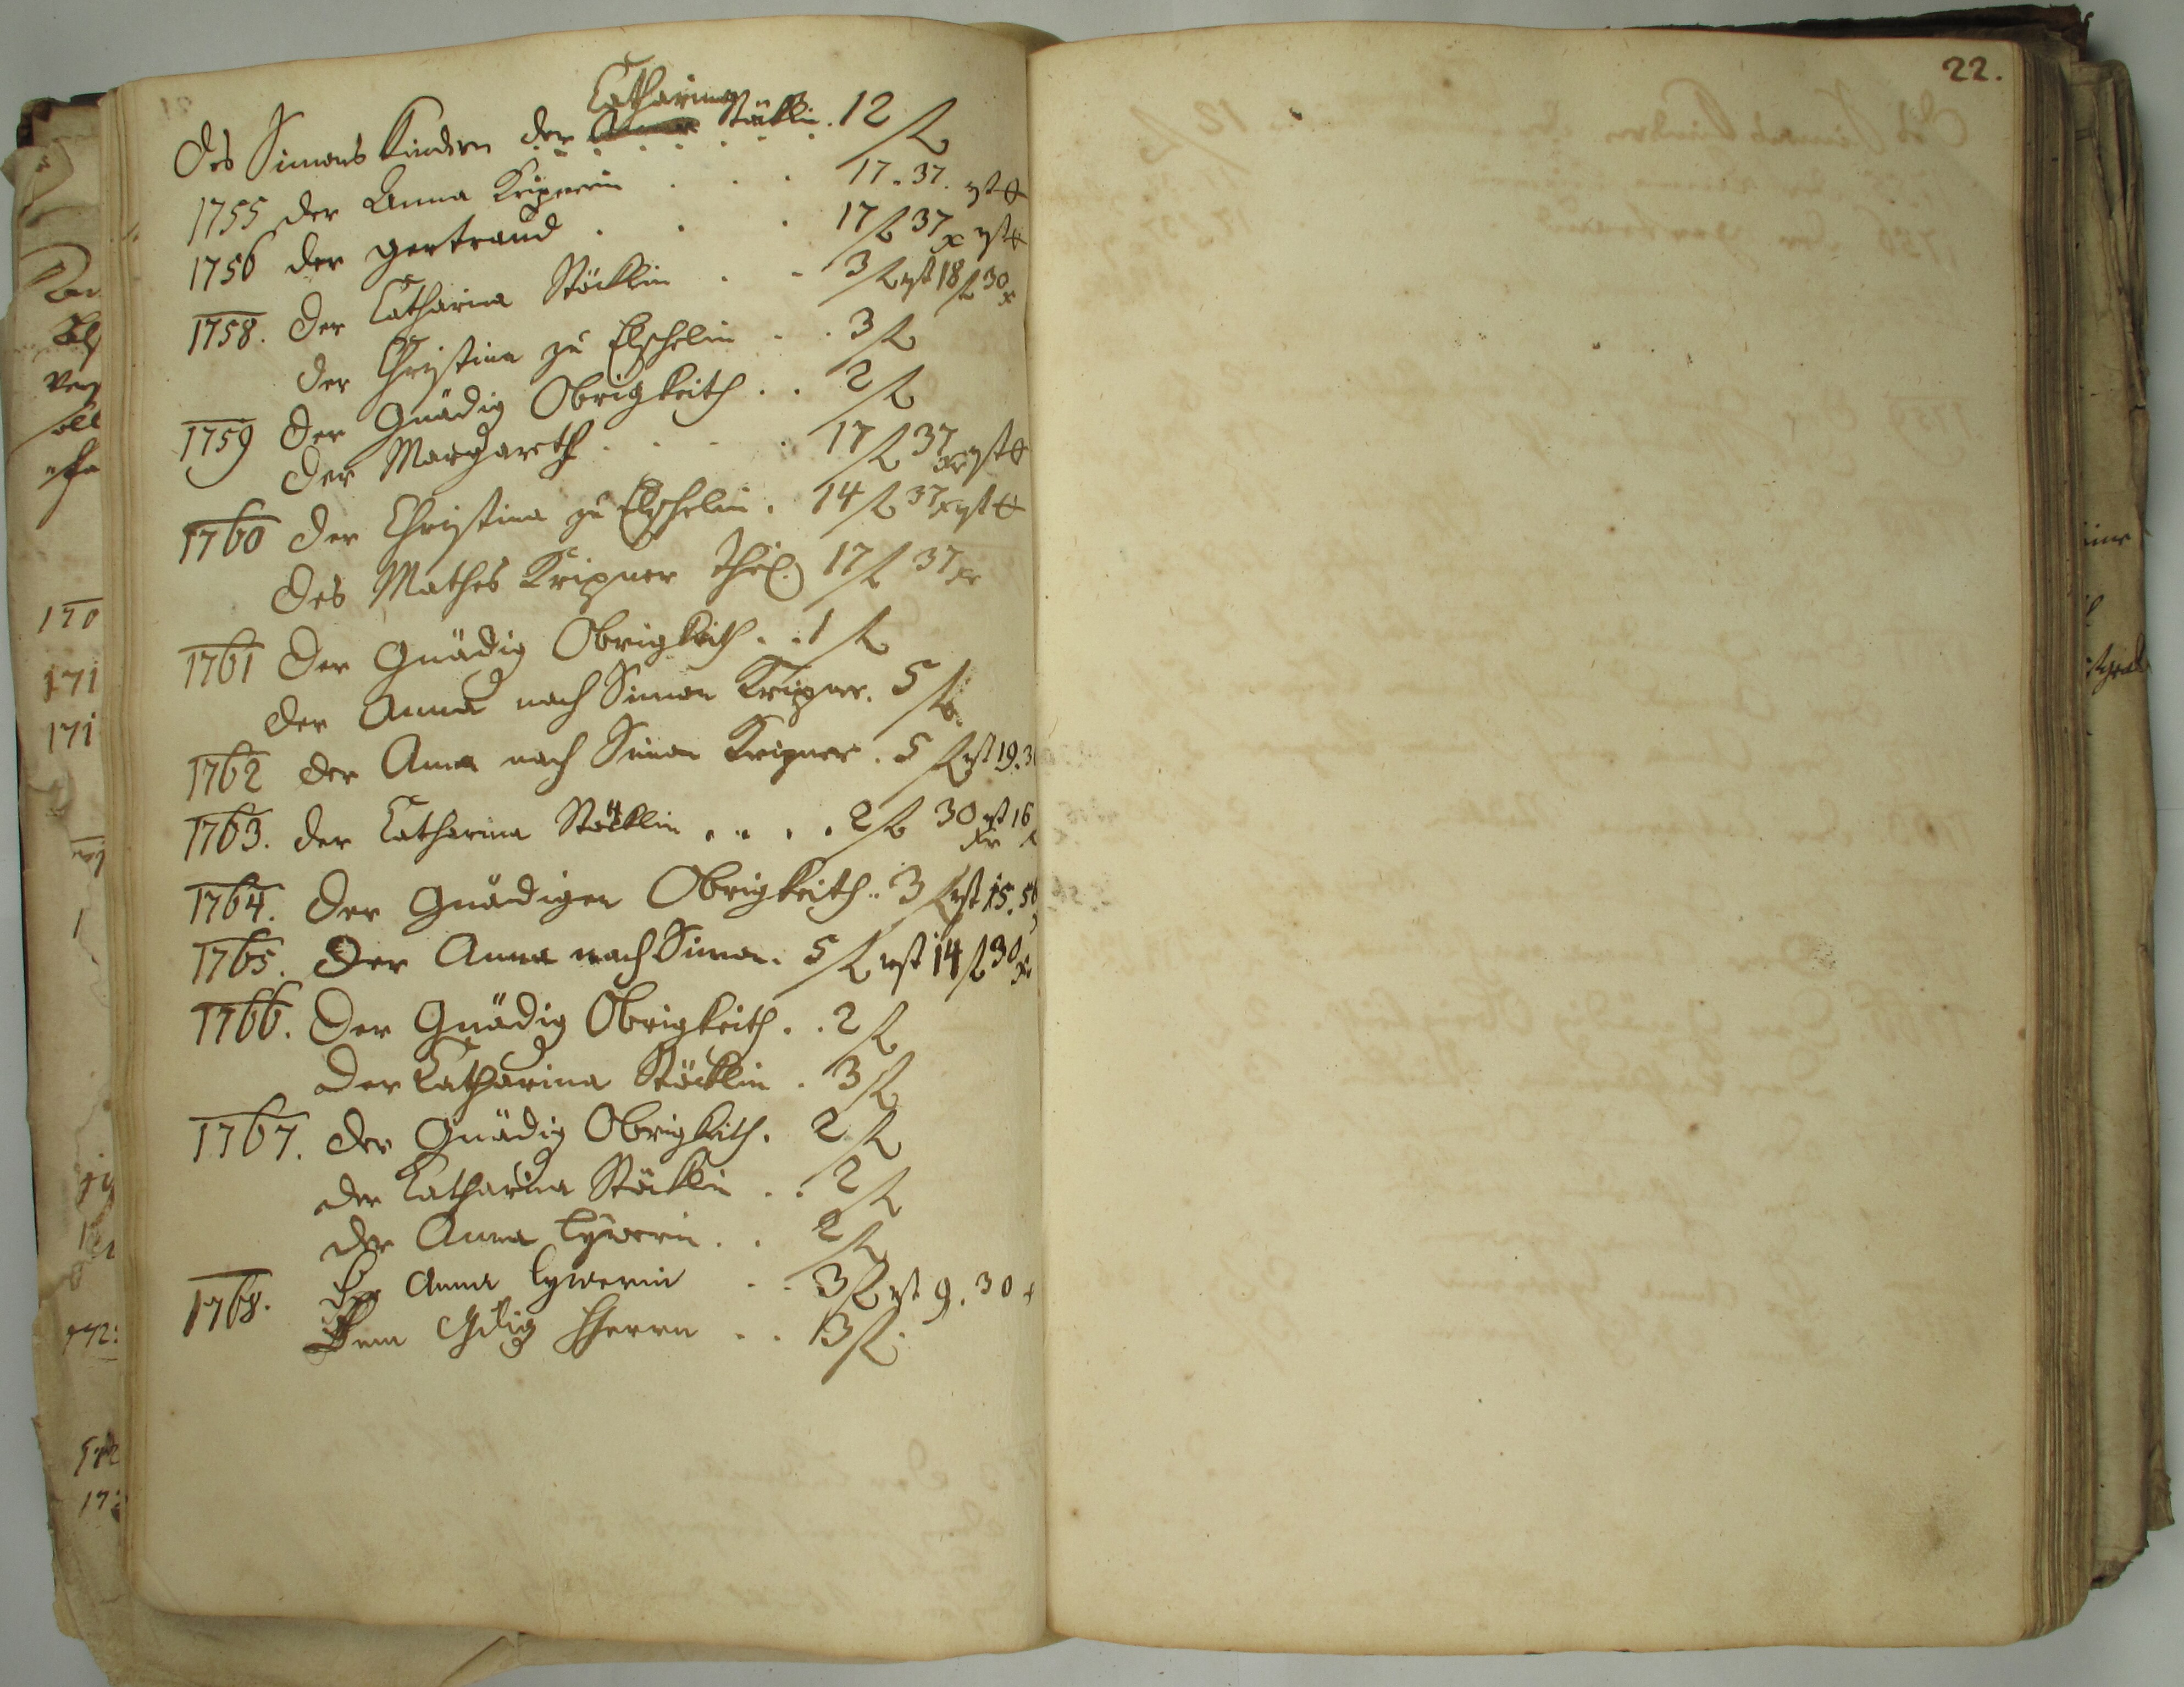 22.
Catharina
Des Simons Kindern der Anna Stöcklin. 12 fl
1755 der Anna Kripnerin . . . 17. 37. rst 0
1756 der gertraud . . . 17 fl 37 x rst 0
1758. der Catharina Stöcklin . . 3 fl rst 18 fl 30 x
der Christina zu Elschelin . . 3 fl
1759 der Gnädig Obrigkeith . . 2 fl
der Margareth . . . . 17 fl 37 xr rst 0
1760 der Christina zu Elschelin . 14 fl 37 x rst 0
des Mathes Kripner theil 17 fl 37 xr
1761 der Gnädig Obrigkeith . . 1 fl
der Anna nach Simon Kripner. 5 fl.
1762 der Anna nach Simon Kripner . 5 fl rst 19. 3
1763. der Catharina Stöcklin . . . . 2 fl 30 xr rst 16
1764. Der Gnädigen Obrigkeith .. 3 fl rst 15. 56
1765. Der Anna nach Simon. 5 fl rst 14 fl 30 x
1766. Der Gnädig Obrigkeith . . 2 fl
der Catharina Stöcklin . 3 fl
1767. der Gnädig Obrigkeith. 2 fl
der Catharina Stöcklin . . 2 fl
der Anna Eywerin . . 2 fl
1768. Der Anna Eywerin . . 3 fl rst 9. 30 x
Dem Gdig Hherrn . . 3 fl.